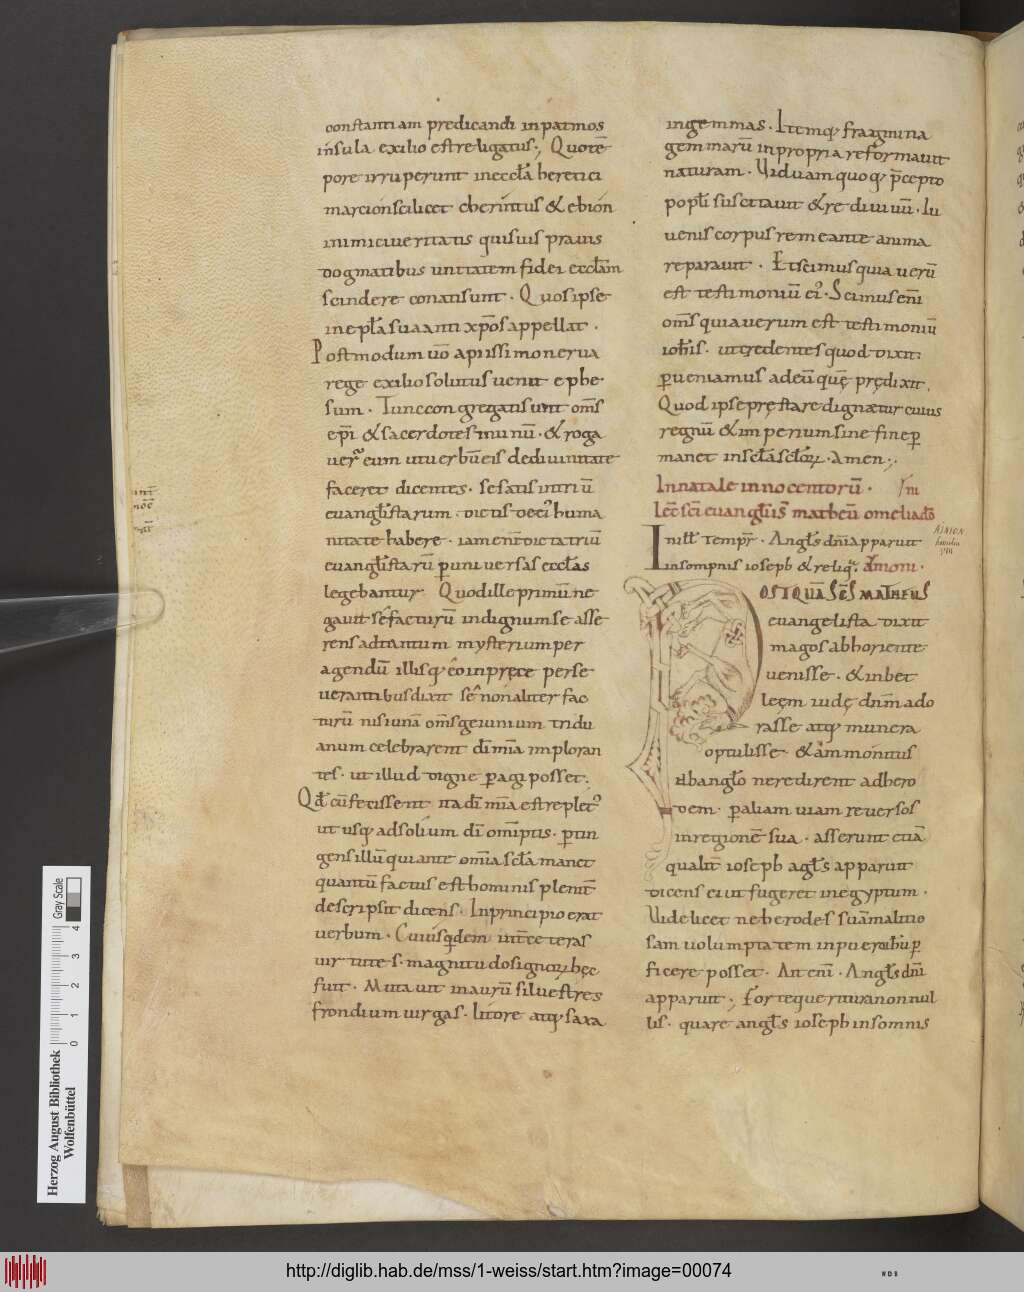 constantiam predicandi inpatmos
insula exilio est religatus ; Quotē
pore irruperunt in ecclā heretici
marcion scilicet cherintus & ebion
inimici ueritatis qui suis prauis
dogmatibus unitatem fidei ecclām
scindere conati sunt . Quos ipse
in eplā sua anti xp̄os appellat .
Postmodum ūo apiissimo nerua
rege exilio solutus uenit ephe
sum . Tunc congregati sunt om̄s
ep̄i & sacerdotes in unū . & roga
uer̄ eum ut uerbū eis de diuinitate
faceret dicentes . se satis in triū
euangl̄istarum dictis de ei᾿ huma
nitate habere . iam enī dicta triū
euangl̄istarū p̄ uniuersas eccl̄as
legebantur Quod ille primū ne
gauit sē facturū indignum se asse
rens ad tantum mysterium per
agendū illisq; eo in prece perse
uerantibus dixit se n̄ aliter fac
turū nisi unā om̄s geiunium tridu
anum celebrarent dī mīa imploran
tes . ut illud digne p̄agi posset .
Qđ cū fecissent ita dī mīa est replet᾿
ut usq; ad solium dī om̄iptis . p̄tin
gens illū qui ante om̄ia sclā manet
quantū factus est hominis plenit᾿
descripsit dicens . In principio erat
uerbum . Cuius q̄dem int̄ ceteras
uirtutes . magnitudo signoꝝ hęc
fuit . Mutauit in aurū siluestres
frondium uirgas . litore atq; saxa
in gemmas . Itemq; fragmina
gemmarū in propria reformauit
naturam . Viduam quoq; p̄cepto
popl̄i suscitauit & rediuiuū . Iu
uenis corpus remeante anima
reparauit . Et scimus quia uerū
est testimoniū ei᾿ . Scimus enī
om̄s quia uerum est testimoniū
ioh̄is . ut credentes quod dixit
p̄ueniamus ad eū quē prędixit .
Quod ipse pręstare dignetur cuius
regnū & imperium sine fine p̄
manet in sclā sclōꝝ . Amen ;
In natale innocentorū .
Lec̄ sc̄i euangl̄ii s̄ matheū omelia
In ill̄ tempr̄ . Angl̄s dn̄i apparuit
in sompnis ioseph & reliq;
POSTQUĀ SC̄S MATHEUS
euangelista dixit
magos ab horiente
uenisse . & in bet
leem iudę dn̄m ado
rasse atq; munera
optulisse & ammonitus
ab anglo ne redirent ad hero
dem . p̄ aliam uiam reuersos
in regionē sua . asserunt etiā
qualit̄ ioseph agl̄s apparuit
dicens ei ut fugeret in egyptum .
Videlicet ne herodes suā malitio
sam uolumptatem in puero
ficere posset . Ait enī . Angl̄s dn̄i
apparuit ; Forte queritur a nonnul
lis . quare angl̄s ioseph in somnis
Herzog August Bibliothek
Wolfenbüttel
0 1 2 3 4
Gray Scale
http://diglib.hab.de/mss/1-weiss/start.htm?image=00074